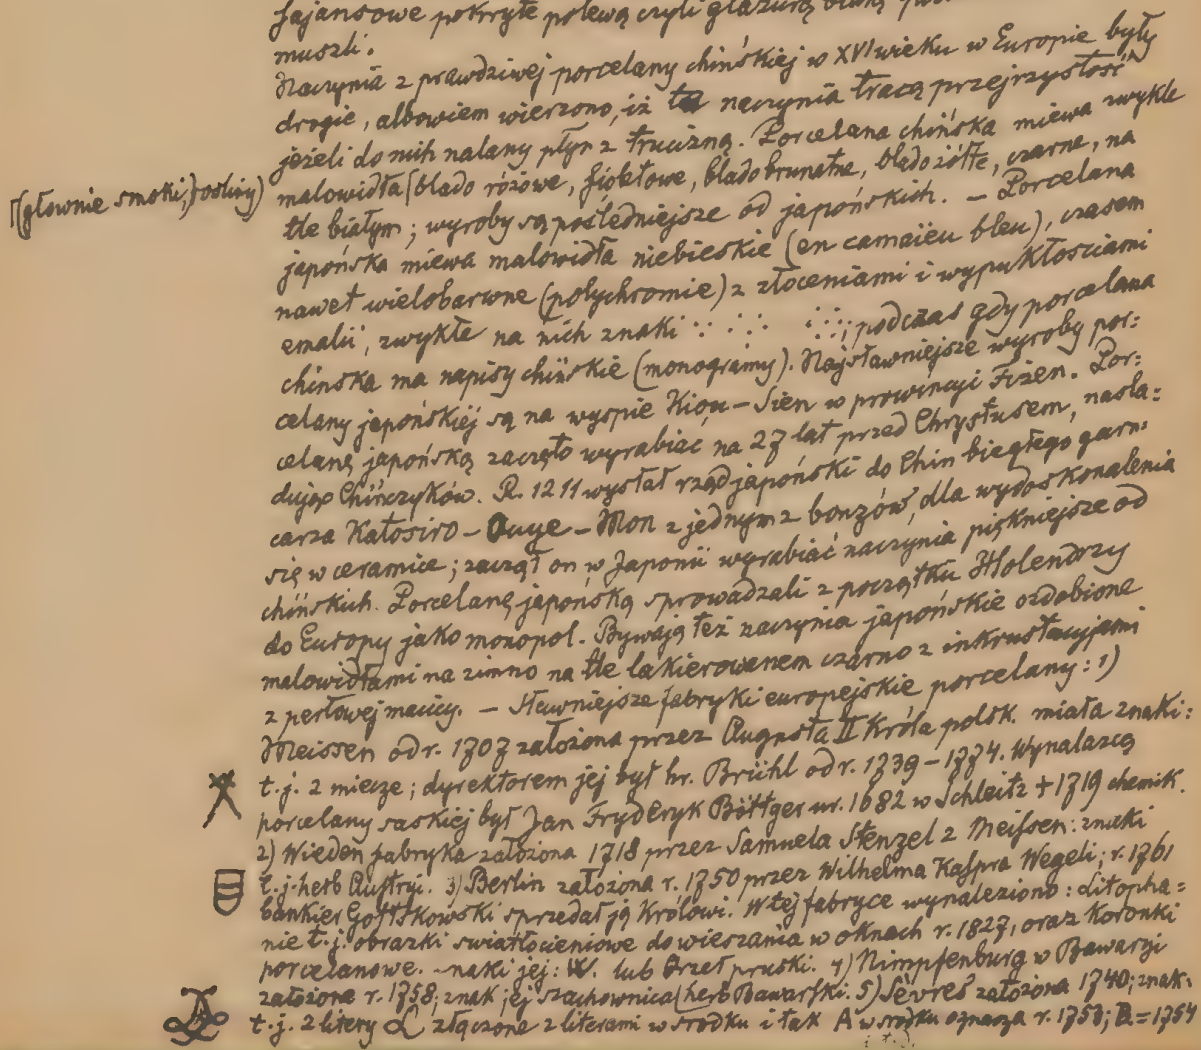 fajansowe pokryte polewą czyli glazurą
muszli.
Naczynia z prawdziwej porcelany chińskiej w XVI wieku w Europie były
drogie, albowiem wierzono, iż naczynia tracą przejrzystość
jeżeli do nich nalany płyn z trucizną. Porcelana chińska miewa zwykle
(głownie smoki, rośliny) malowidła (blado różowe, fiołkowe, bladobrunatne, blado żółte, czarne, na
tle białym; wyroby są pośledniejsze od japońskich. — Porcelana
japońska miewa malowidła niebieskie (en camaieu bleu), czasem
nawet wielobarwne (polychromie) z złoceniami i wypukłościami
emalii, zwykłe na nich znaki ; podczas gdy porcelana
chinska ma napisy chińskie (monogramy). Najsławniejsze wyroby por:
celany japońskiéj są na wyspie Kiou-Sien w prowincyi Fizen. Por:
celanę japońską zaczęto wyrabiać na 27 lat przed Chrystusem, naśla:
dując Chińczyków. R. 1211 wysłał rząd japoński do Chin biegłego garn:
carza Katosiro - Ouye - Mon z jednym z bonzów, dla wydoskonalenia
się w ceramice; zaczął on w Japonii wyrabiać naczynia piękniejsze od
chińskich. Porcelanę japońską sprowadzali z początku Holendrzy
do Europy jako monopol. Bywają też naczynia japońskie ozdobione
malowidłami na zimno na tle lakierowanem czarno z inkrustacyjami
z perłowej macicy. — Sławniejsze fabryki europejskie porcelany: 1)
Meissen od r. 1707 założona przez Augusta II Króla polsk. miała znaki:
t.j. 2 miecze; dyrektorem jej był hr. Brühl od r. 1739-1774. Wynalazcą
porcelany saskiej był Jan Fryderyk Böttger ur. 1682 w Schleitz + 1719 chemik.
2) Wiedeń fabryka założona 1718 przez Samuela Stenzel z Meissen: znaki
t.j. herb Austryi. 3) Berlin założona r. 1750 przez Wilhelma Kaspra Wegeli; r. 1761
bankier Gottskowski sprzedał ją Królowi. W tej fabryce wynaleziono: litopha=
nie t.j. obrazki światłocieniowe do wieszania w oknach r. 1827, oraz koronki
porcelanowe. znaki jej: W. lub Orzeł pruski. 4) Nimpfenburg w Bawaryi
założona r. 1758; znak jej szachownica (herb Bawarski. 5) Sèvres założona 1740; znak:
t.j. 2 litery L złączone z literami w środku i tak A w środku oznacza r. 1753; B = 1754